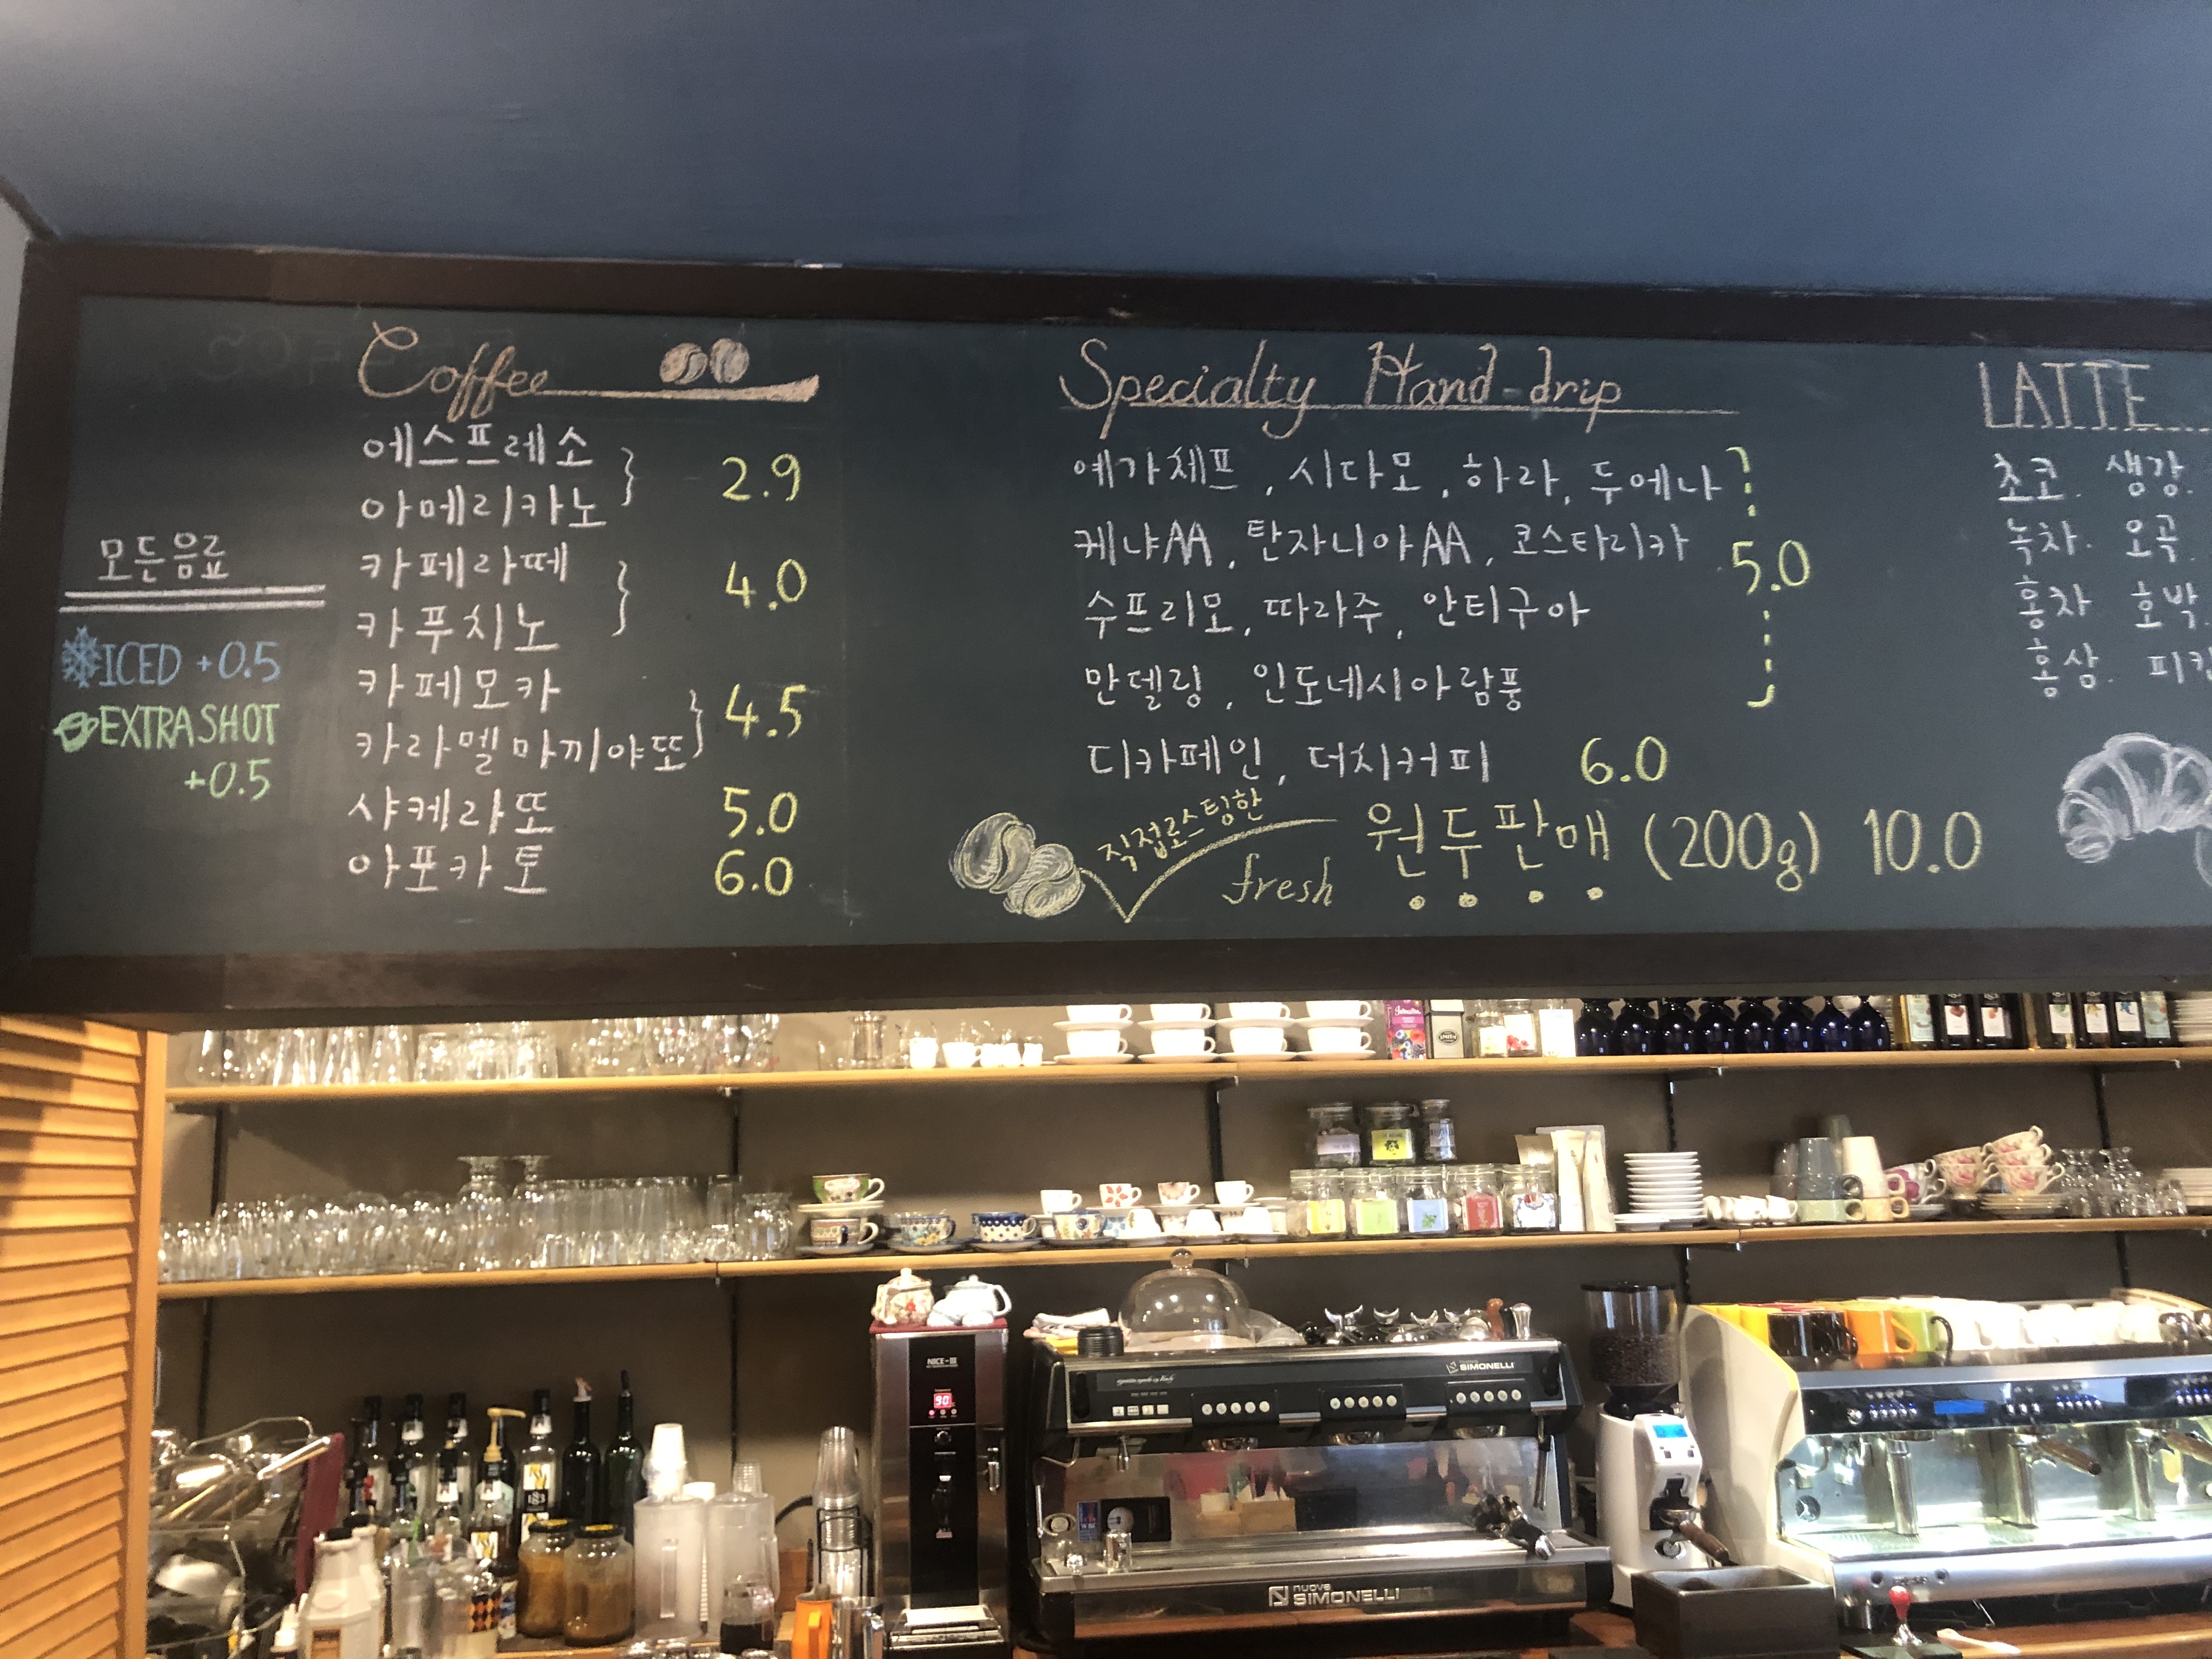 Coffee
에스프레소
아메리카노 2.9
카페라떼
카푸치노 4.0
카페모카
카라멜마끼야또 4.5
샤케라또 5.0
아포카토 6.0
모든음료
ICED +0.5
EXTRA SHOT
+0.5
Specialty Hand-drip
예가체프, 시다모, 하라, 두에나
케냐AA, 탄자니아AA, 코스타리카 5.0
수프리모, 따라주, 안티구아
만델링, 인도네시아람풍
디카페인, 더치커피 6.0
직접로스팅한
fresh 원두판매 (200g) 10.0
LATTE
초코. 생강.
녹차. 오곡.
홍차 호박.
홍삼.
NICE-III
90
SIMONELLI
nuova
SIMONELLI